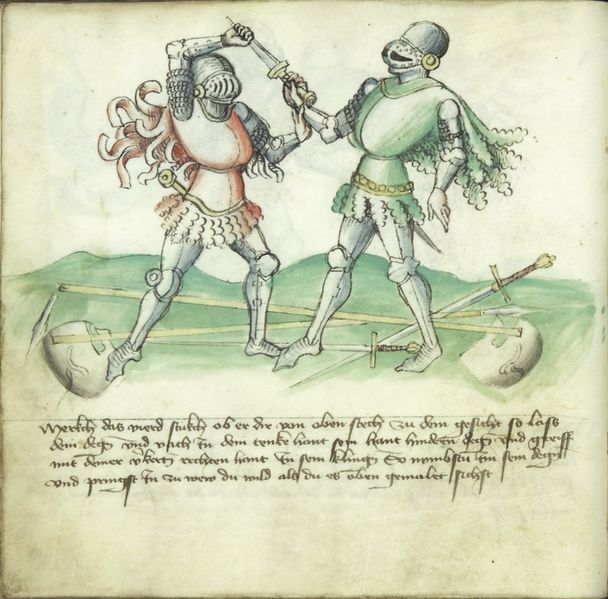 Merkch das vierd stukch ob er dir von oben stech zu dem gesicht so lass
dein degen vnd vach In dein tenke hant sein hant hindern degen vnd greiff
mit deiner rechten hant In sein kling So nimbstu Im sein degen
vnd pringst In zu wew du wild als du es oben gemalet sichst